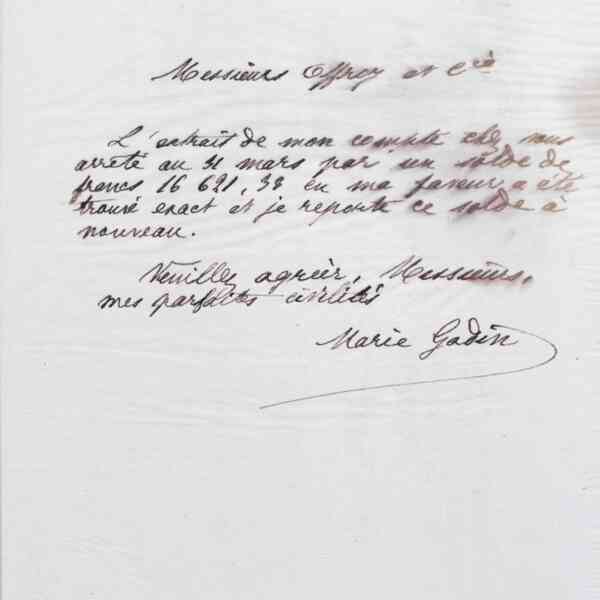 Messieurs Offroy et Cie
L'extrait de mon compte chez vous
arrêté au 31 mars par un solde de
francs 16 621,38 en ma faveur a été
trouvé exact et je reporte ce solde à
nouveau.
Veuillez agréer, Messieurs,
mes parfaites civilités
Marie Godin